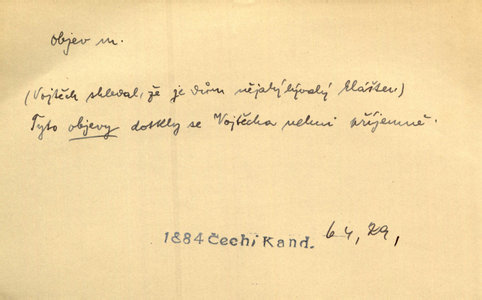 objev m.
(Vojtěch shledal, že je dům nějaký bývalý klášter)
Tyto objevy dotkly se Vojtěcha velmi příjemně.
1884 Čech Kand. 64, 29,